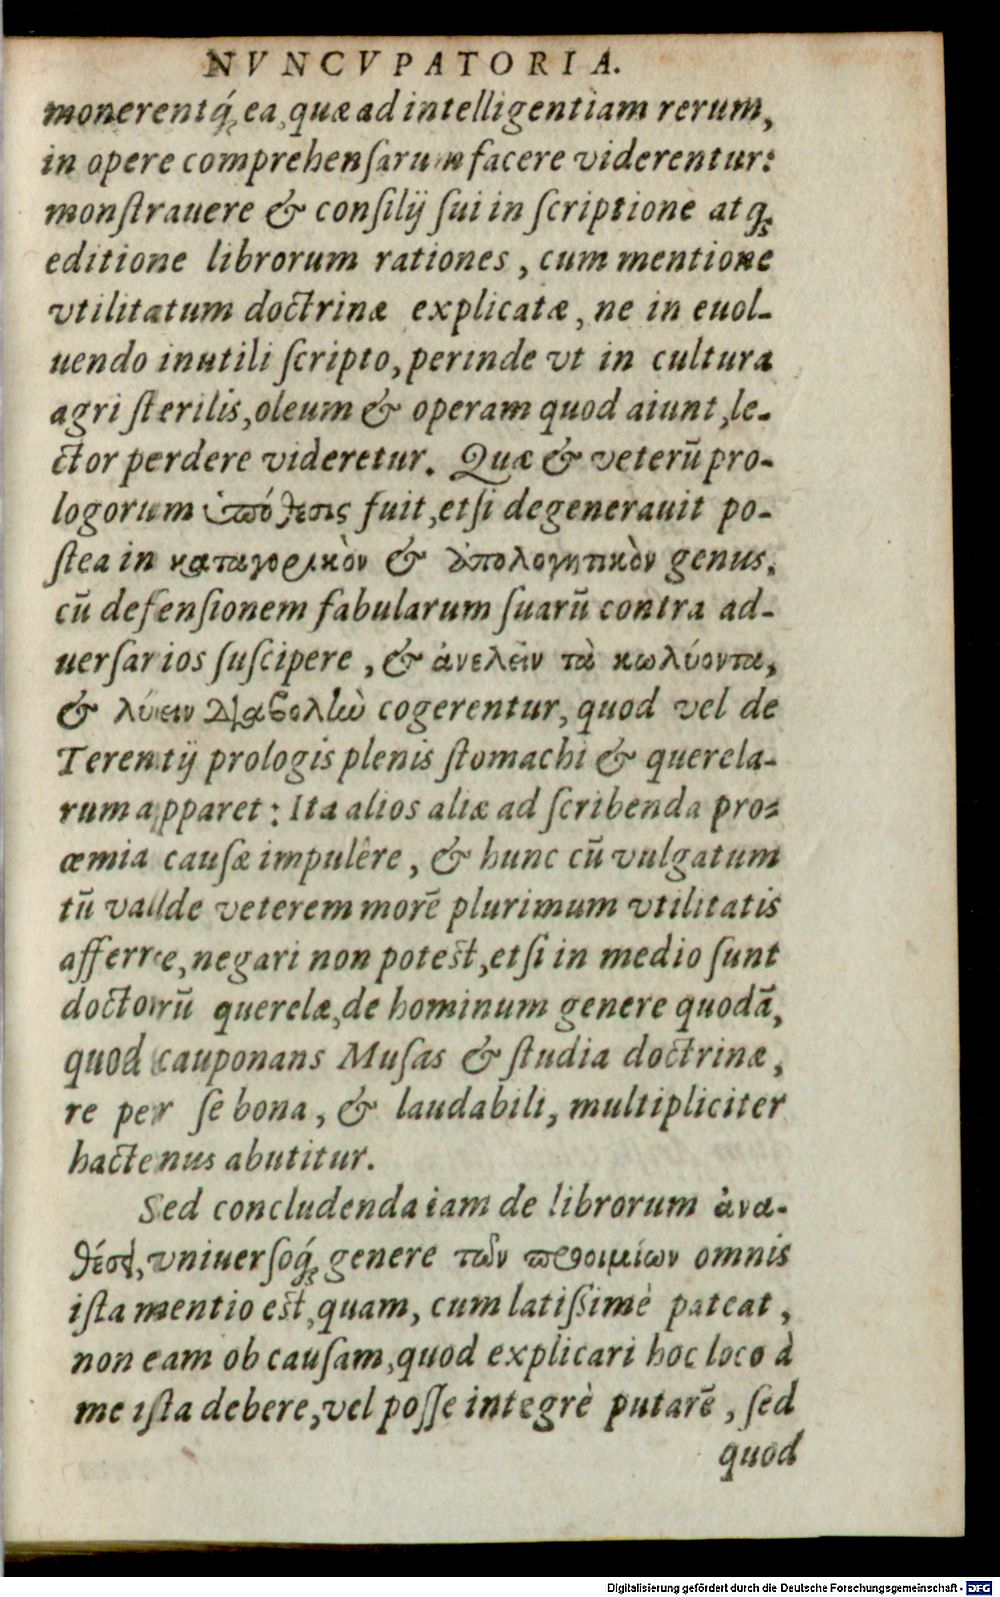 NVNCVPATORIA.
monerentq́ꝫ ea, quæ ad intelligentiam rerum,
in opere comprehensarum facere viderentur:
monſtrauere & conſilij ſui in ſcriptione atqꝫ
editione librorum rationes, cum mentione
vtilitatum doctrinæ explicatæ, ne in euol-
uendo inutili ſcripto, perinde vt in cultura
agri ſterilis, oleum & operam quod aiunt, le-
ctor perdere videretur. Quæ & veterū pro-
logorum ὑπόθεσις fuit, etſi degenerauit po-
ſtea in κατηγορικὸν & ἀπολογητικὸν genus,
cū defenſionem fabularum ſuarū contra ad-
uerſarios ſuſcipere, & ἀνελεῖν τὰ κωλύοντα,
& λύειν διαβολὴν cogerentur, quod vel de
Terentij prologis plenis ſtomachi & querela-
rum apparet: Ita alios aliæ ad ſcribenda pro-
œmia cauſæ impulêre, & hunc cū vulgatum
tū valde veterem morē plurimum vtilitatis
afferre, negari non potest, etſi in medio ſunt
doctorū querelæ, de hominum genere quodā,
quod cauponans Muſas & ſtudia doctrinæ,
re per ſe bona, & laudabili, multipliciter
hactenus abutitur.
Sed concludenda iam de librorum ἀνα-
θέσει, vniuerſoq́ꝫ genere τῶν προοιμίων omnis
iſta mentio est, quam, cum latiſsimè pateat,
non eam ob cauſam, quod explicari hoc loco à
me iſta debere, vel poſſe integrè putarē, ſed
quod
Digitalisierung gefördert durch die Deutsche Forschungsgemeinschaft - DFG